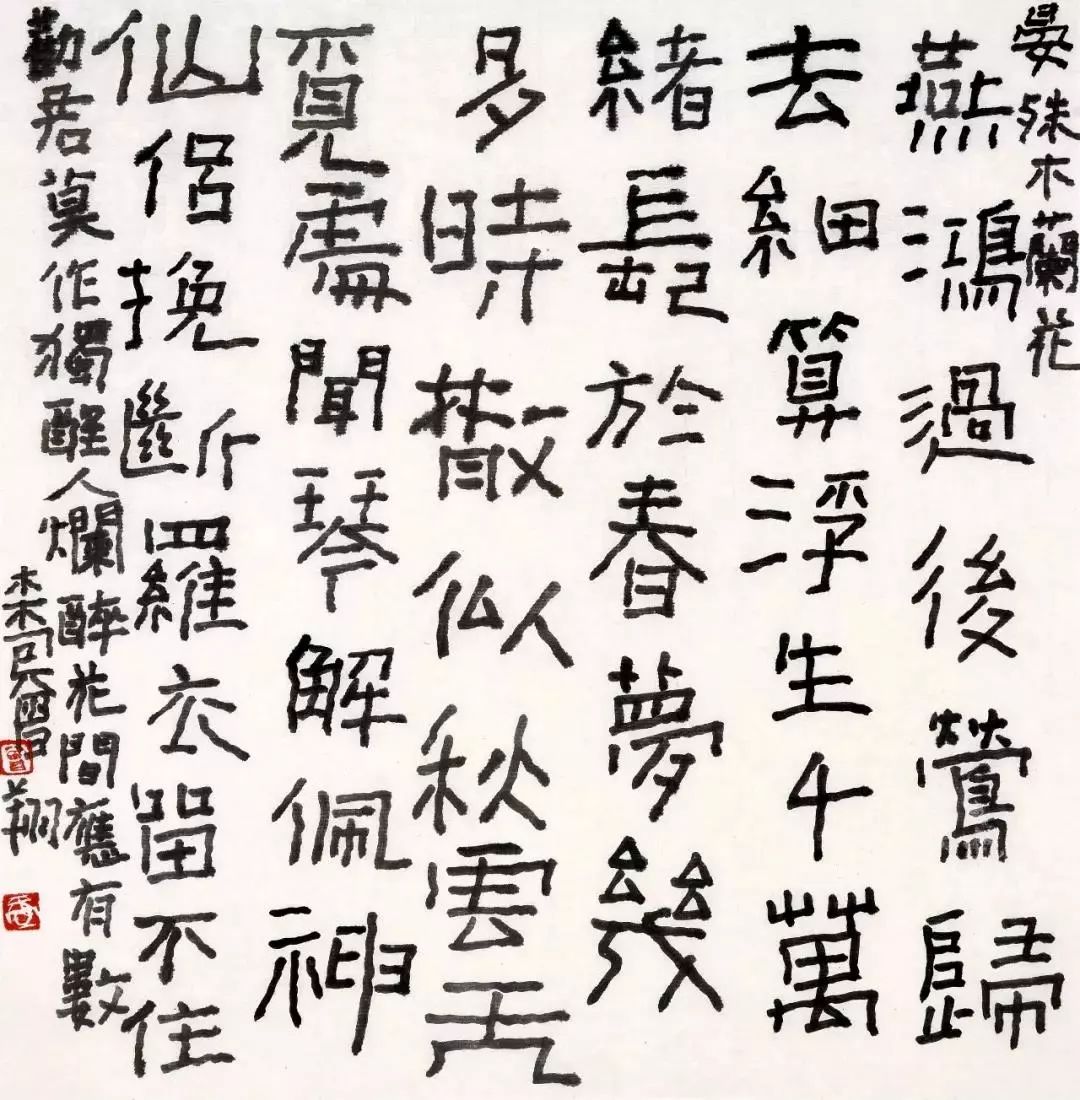 晏殊木蘭花
燕鴻過後鶯歸
去細算浮生千萬
緒長於春夢幾
多時散似秋雲无
覓處聞琴解佩神
仙侶挽斷羅衣留不住
勸君莫作獨醒人爛醉花間應有數
曾翔